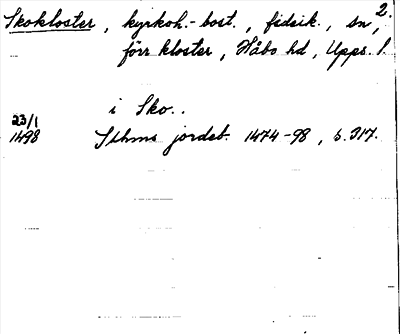 2.
Skokloster, kyrkoh.-bost., fideik., sn,
förr kloster, Håbo hd, Upps. l.
i Sko..
23/1
1498 Sthms jordeb. 1474-98, s. 317.